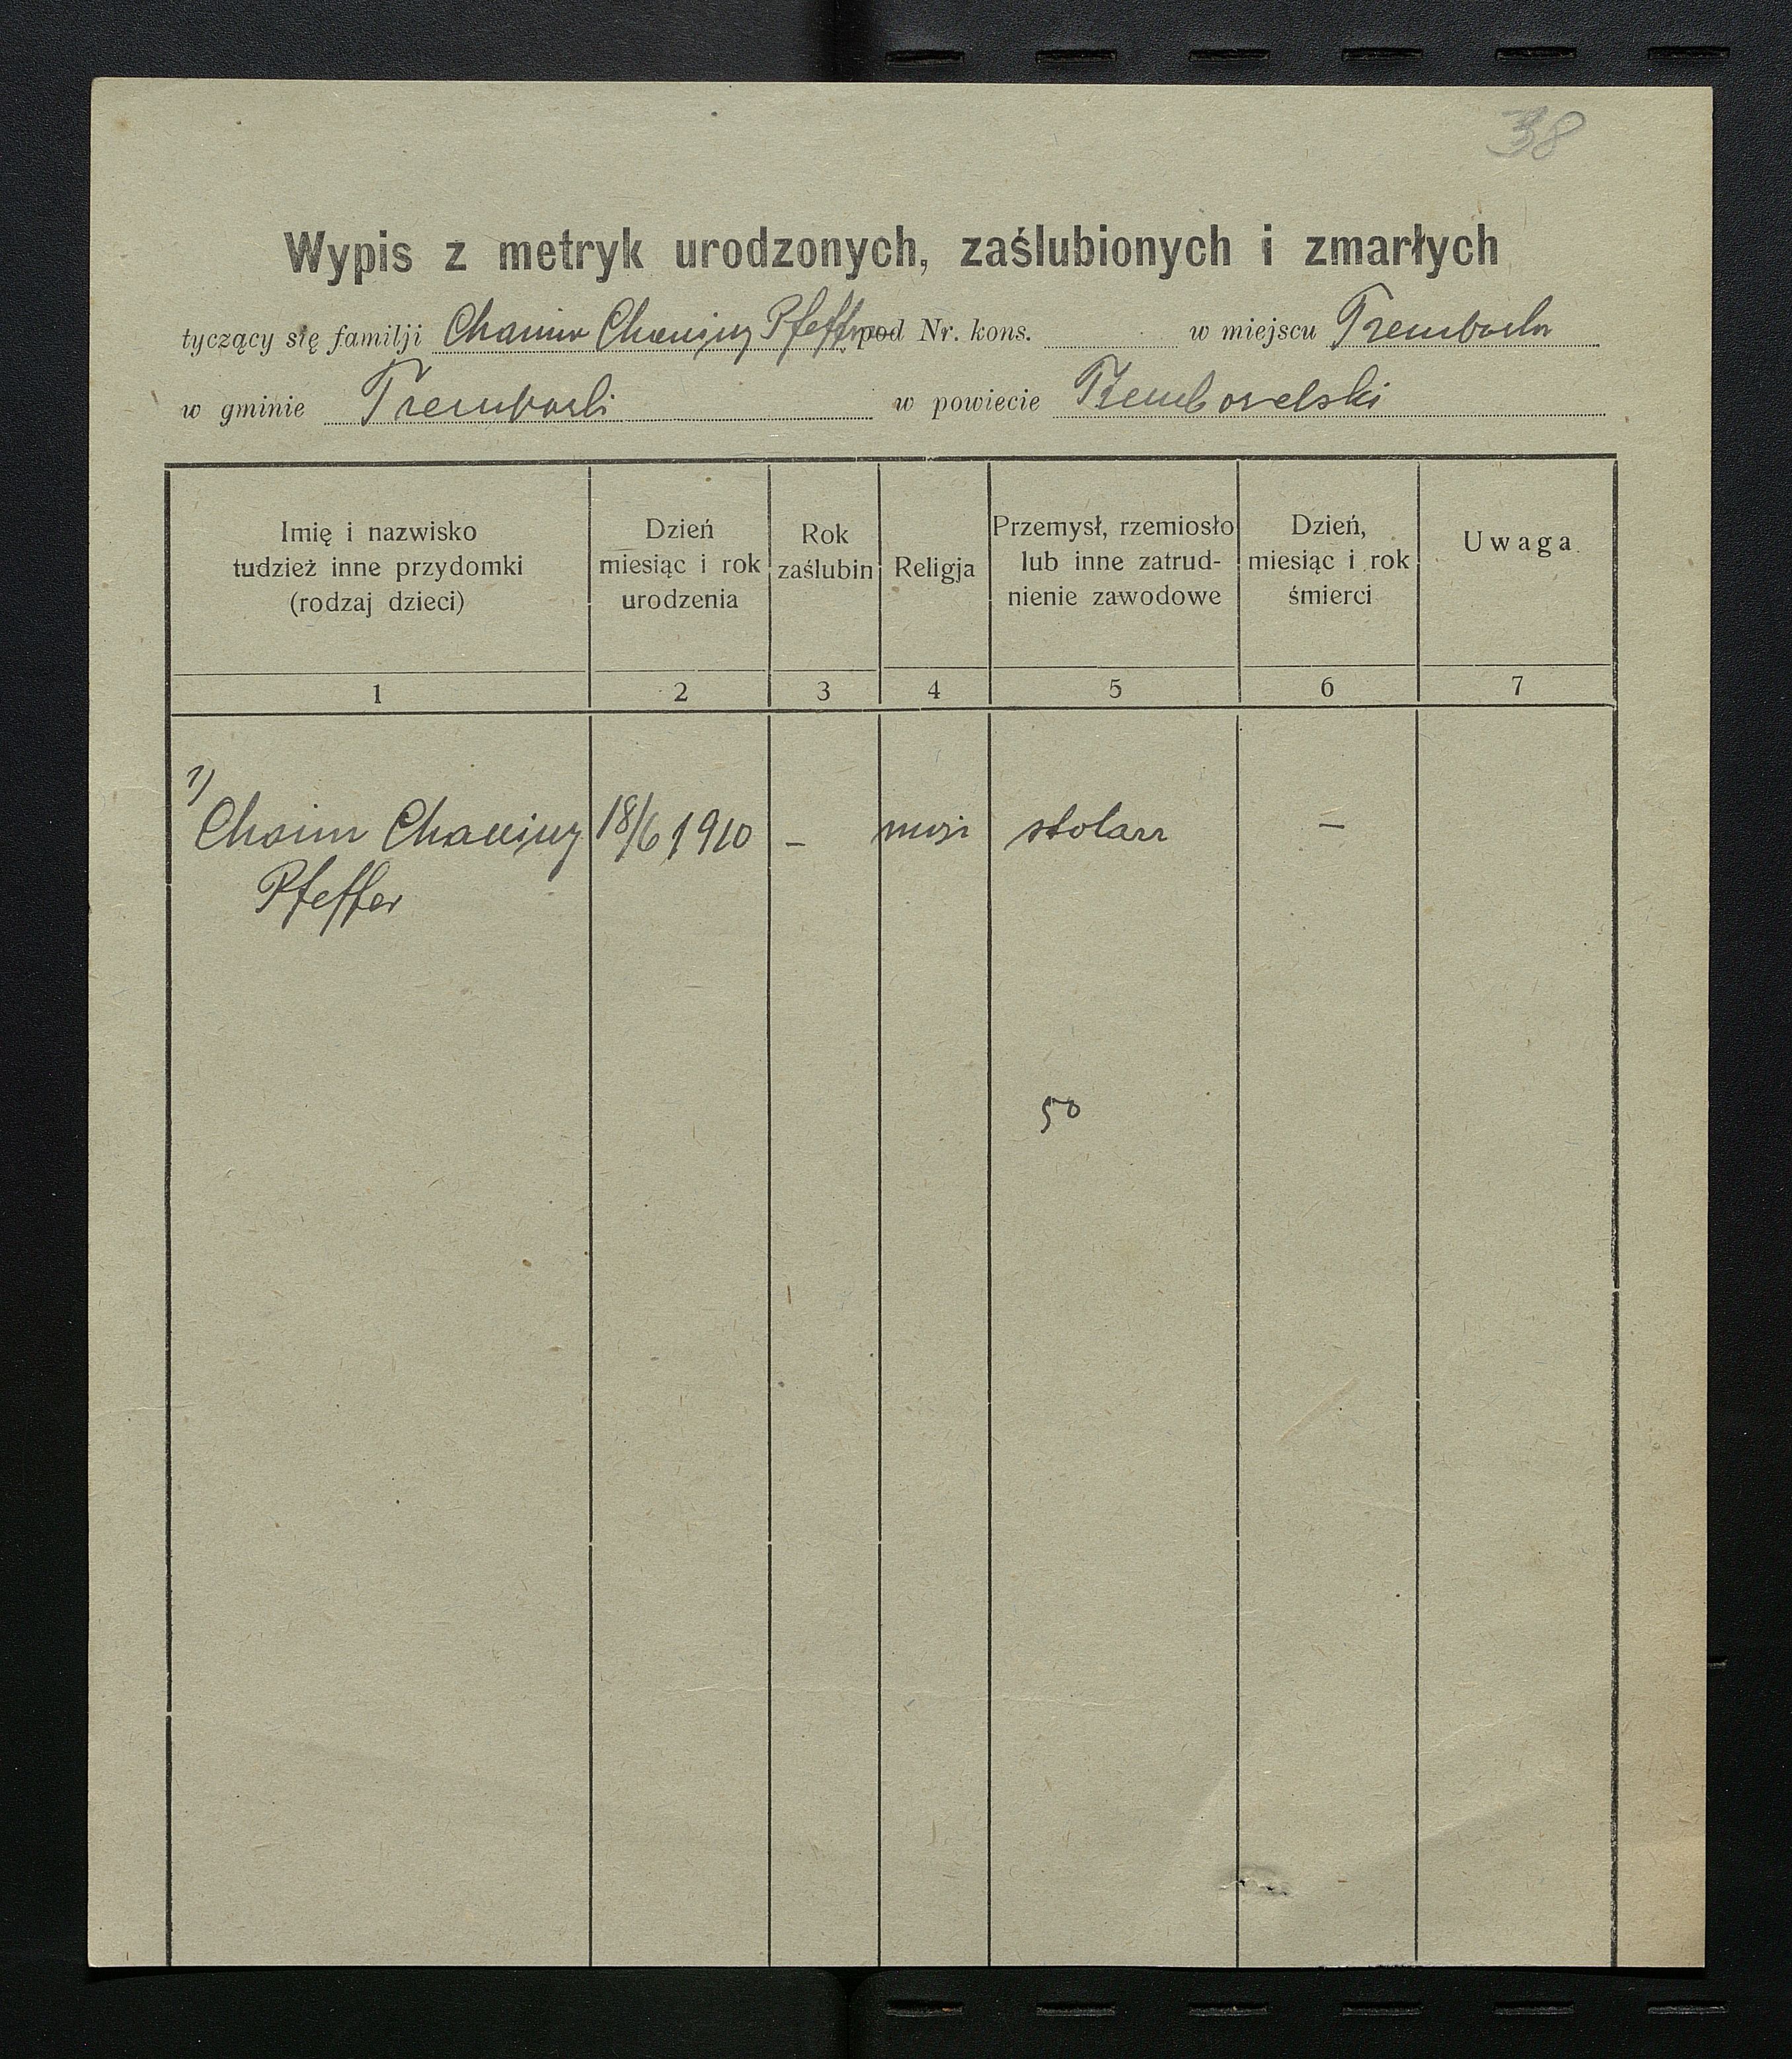 38
Wypis z metryk urodzonych, zaślubionych i zmarłych
tyczący się familji Chaima Pfeffer pod Nr. kons. w miejscu Trembowla
w gminie Trembowli w powiecie Trembowelski
Imię i nazwisko
tudzież inne przydomki
(rodzaj dzieci)
Dzień
miesiąc i rok
urodzenia
Rok
zaślubin
Religja
Przemysł, rzemiosło
lub inne zatrud-
nienie zawodowe
Dzień,
miesiąc i rok
śmierci
Uwaga
1 2 3 4 5 6 7
1)
Chaim 18/6 1910 – mojż stolarz –
Pfeffer
50